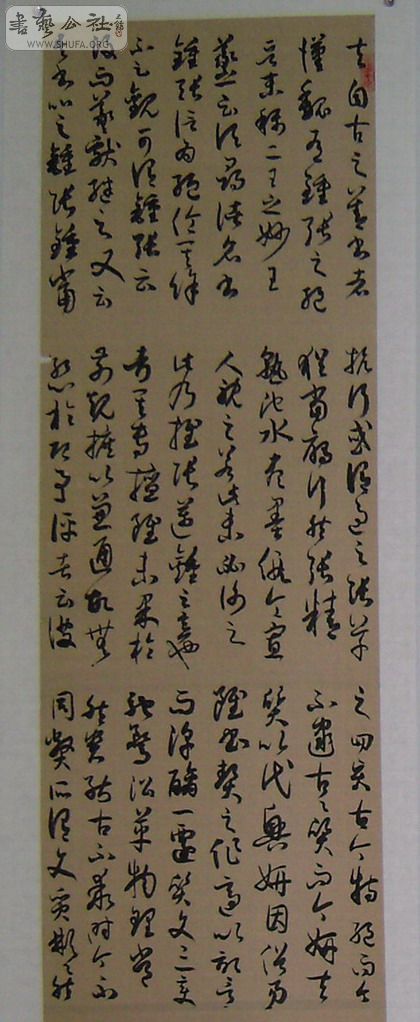 書藝公社
WWW.SHUFA.ORG
夫自古之善書者
漢魏有鍾張之絕
晉末稱二王之妙王
羲之云頃尋諸名書
鍾張信為絕倫其餘
不足觀可謂鍾張云
沒而羲獻繼之又云
吾書比之鍾張鍾當
抗行或謂過之張草
猶當雁行然張精
熟池水盡墨假令寡
人耽之若此未必謝之
此乃推張邁鍾之意也
考其專擅雖未果於
前規摭以兼通故無
慚於即事評者云彼
之四賢古今特絕而今
不逮古古質而今妍夫
質以代興妍因俗易
雖書契之作適以記言
而淳醨一遷質文三變
馳騖沿革物理常
然貴能古不乖時今不
同弊所謂文質彬彬然